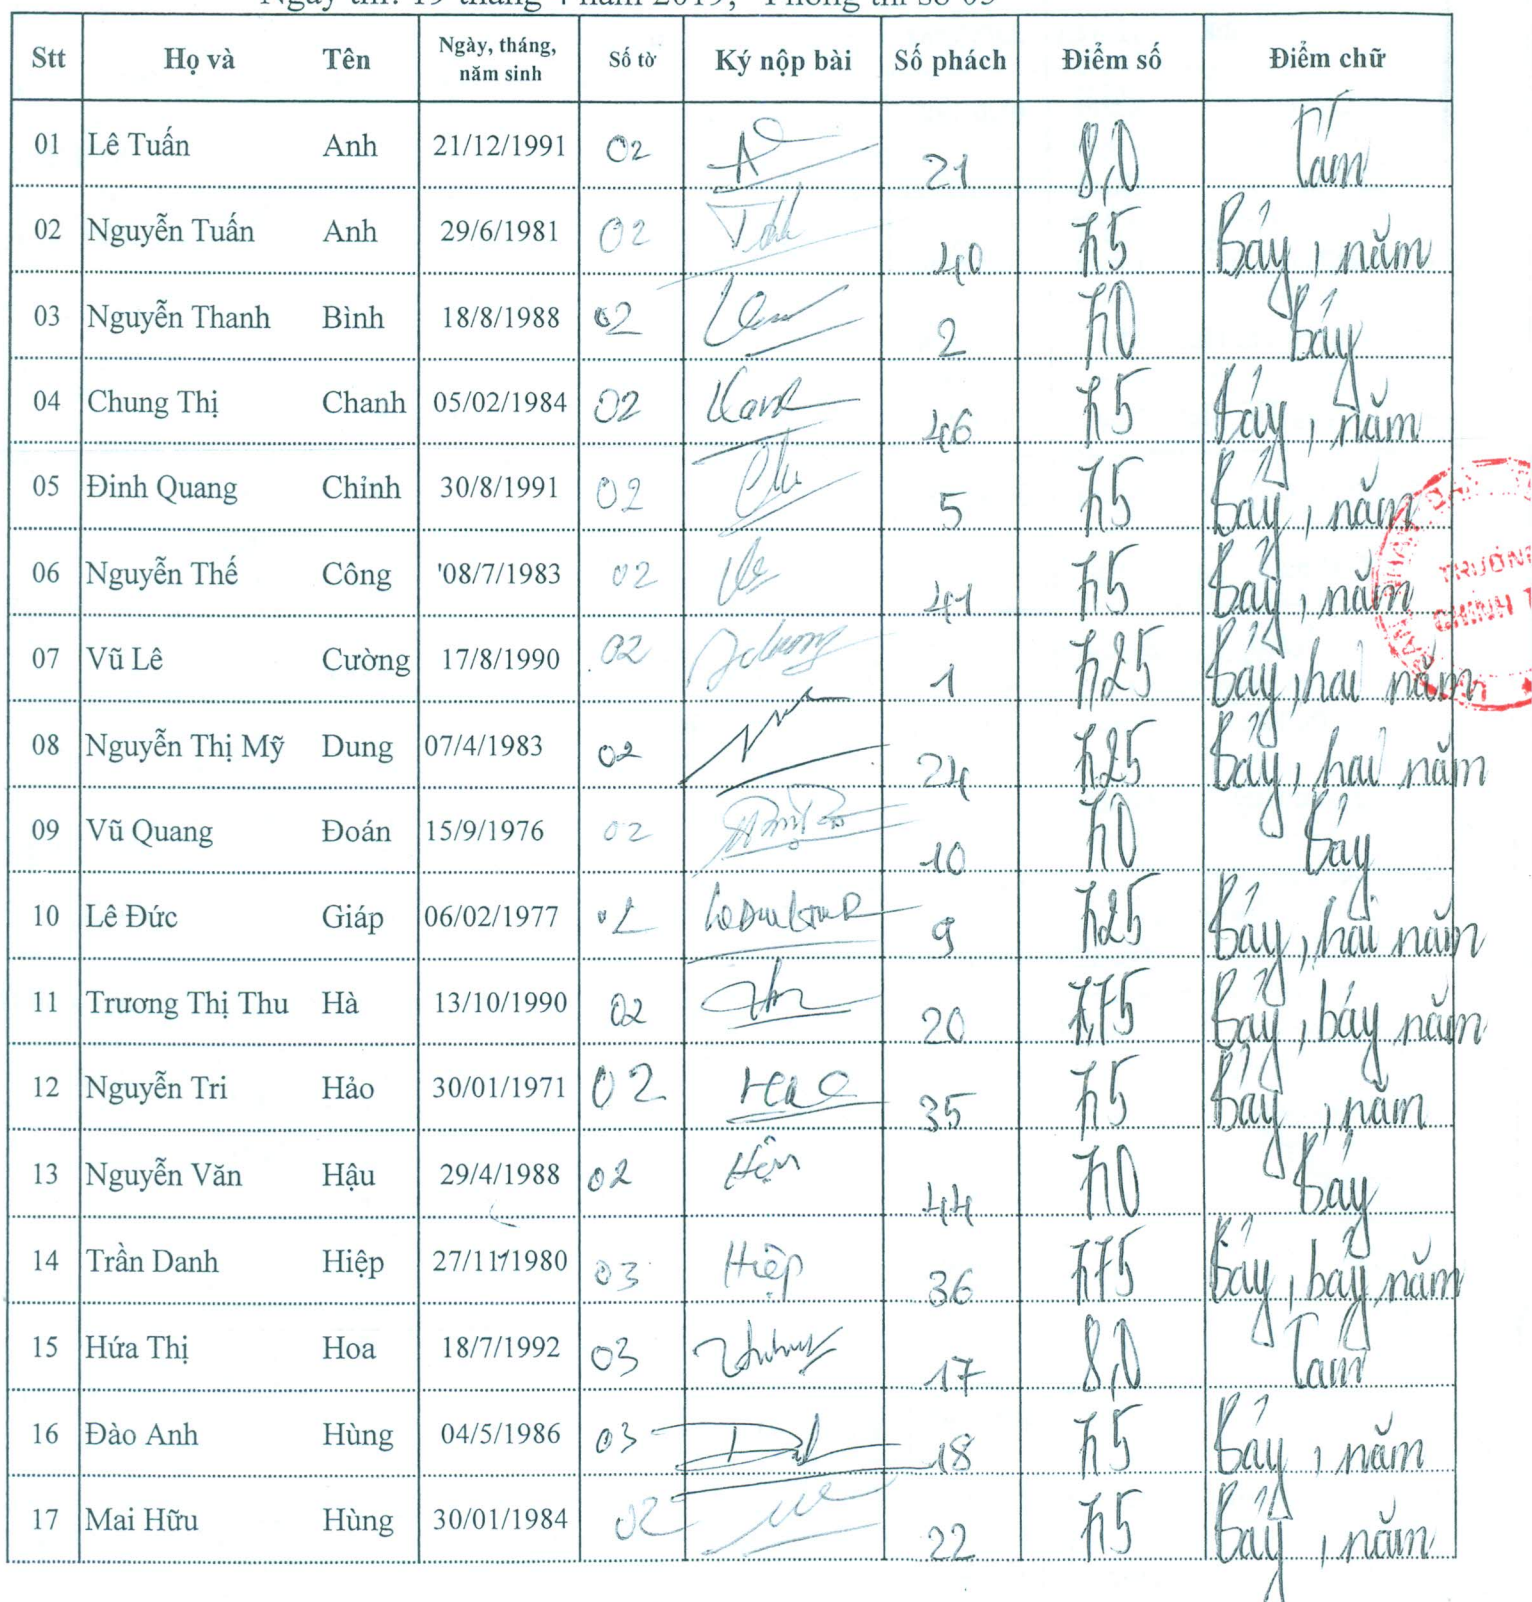 Ngày thi: 19 tháng 4 năm 2019, Phòng thi số 05
Stt Họ và Tên Ngày, tháng, năm sinh Số tờ Ký nộp bài Số phách Điểm số Điểm chữ
01 Lê Tuấn Anh 21/12/1991 02 21 8,0 Tám
02 Nguyễn Tuấn Anh 29/6/1981 02 40 7,5 Bảy, năm
03 Nguyễn Thanh Bình 18/8/1988 02 2 7,0 Bảy
04 Chung Thị Chanh 05/02/1984 02 46 7,5 Bảy, năm
05 Đinh Quang Chỉnh 30/8/1991 02 5 7,5 Bảy, năm
06 Nguyễn Thế Công '08/7/1983 02 41 7,5 Bảy, năm
07 Vũ Lê Cường 17/8/1990 02 1 7,25 Bảy, hai năm
08 Nguyễn Thị Mỹ Dung 07/4/1983 02 24 7,25 Bảy, hai năm
09 Vũ Quang Đoán 15/9/1976 02 10 7,0 Bảy
10 Lê Đức Giáp 06/02/1977 02 9 7,25 Bảy, hai năm
11 Trương Thị Thu Hà 13/10/1990 02 20 7,75 Bảy, bảy năm
12 Nguyễn Tri Hảo 30/01/1971 02 35 7,5 Bảy, năm
13 Nguyễn Văn Hậu 29/4/1988 02 Hậu 44 7,0 Bảy
14 Trần Danh Hiệp 27/11/1980 03 Hiệp 36 7,75 Bảy, bảy năm
15 Hứa Thị Hoa 18/7/1992 03 17 8,0 Tám
16 Đào Anh Hùng 04/5/1986 03 18 7,5 Bảy, năm
17 Mai Hữu Hùng 30/01/1984 02 22 7,5 Bảy, năm
TRƯỜNG
CHÍNH T